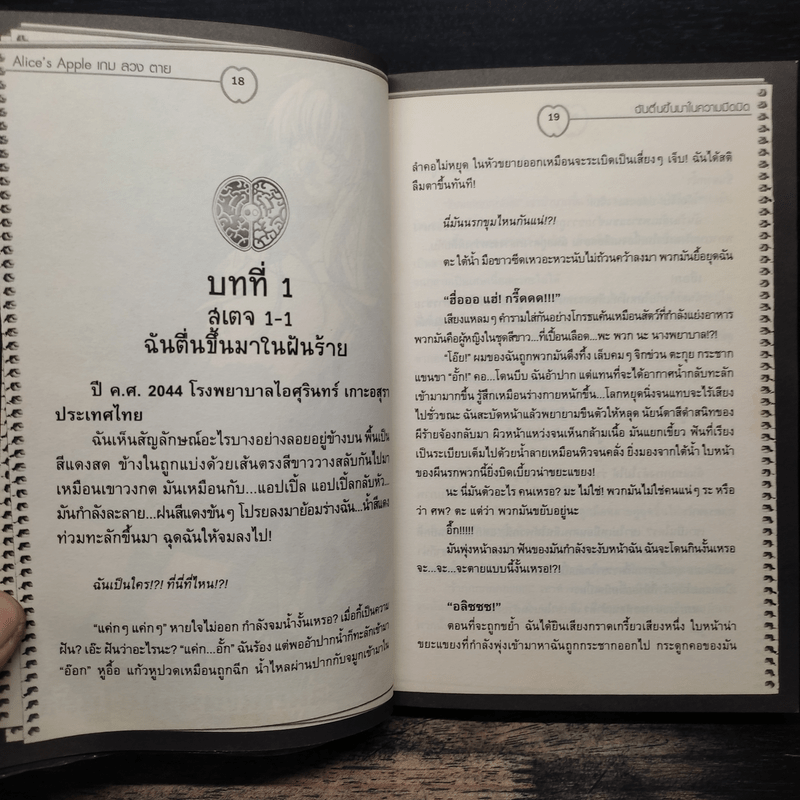 Alice's Apple เกม ลวง ตาย
18
บทที่ 1
สเตจ 1-1
ฉันตื่นขึ้นมาในฝันร้าย
ปี ค.ศ. 2044 โรงพยาบาลไอศุรินทร์ เกาะอสุรา
ประเทศไทย
ฉันเห็นสัญลักษณ์อะไรบางอย่างลอยอยู่ข้างบน พื้นเป็น
สีแดงสด ข้างในถูกแบ่งด้วยเส้นตรงสีขาววางสลับกันไปมา
เหมือนเขาวงกต มันเหมือนกับ...แอปเปิ้ล แอปเปิ้ลกลับหัว...
มันกำลังละลาย...ฝนสีแดงข้นๆ โปรยลงมาย้อมร่างฉัน...น้ำสีแดง
ท่วมทะลักขึ้นมา ฉุดฉันให้จมลงไป!
ฉันเป็นใคร!?! ที่นี่ที่ไหน!?!
"แค่กๆ แค่กๆ" หายใจไม่ออก กำลังจมน้ำงั้นเหรอ? เมื่อกี้เป็นความ
ฝัน? เอ๊ะ ฝันว่าอะไรนะ? "แค่ก...อั้ก" ฉันร้อง แต่พออ้าปากน้ำก็ทะลักเข้ามา
"อ๊อก" หูอื้อ แก้วหูปวดเหมือนถูกฉีก น้ำไหลผ่านปากกับจมูกเข้ามาใน
19
ฉันตื่นขึ้นมาในความมืดมิด
ลำคอไม่หยุด ในหัวขยายออกเหมือนจะระเบิดเป็นเสี่ยงๆ เจ็บ! ฉันได้สติ
ลืมตาขึ้นทันที!
นี่มันนรกขุมไหนกันแน่!?!
ตะ ใต้น้ำ มือขาวซีดเหวอะหวะนับไม่ถ้วนคว้าลงมา พวกมันยื้อยุดฉัน
"ฮื่อออ แฮ่! กรี๊ดดด!!!"
เสียงแหลมๆ คำรามใส่กันอย่างโกรธแค้นเหมือนสัตว์ที่กำลังแย่งอาหาร
พวกมันคือผู้หญิงในชุดสีขาว...ที่เปื้อนเลือด...พะ พวก นะ นางพยาบาล!?!
"โอ๊ย!" ผมของฉันถูกพวกมันดึงทึ้ง เล็บคมๆ จิกข่วน ตะกุย กระชาก
แขนขา "อั้ก!" คอ...โดนบีบ ฉันอ้าปาก แต่แทนที่จะได้อากาศน้ำกลับทะลัก
เข้ามามากขึ้น รู้สึกเหมือนร่างกายหนักขึ้น...โลกหยุดนิ่งจนแทบจะไร้เสียง
ไปชั่วขณะ ฉันสะบัดหน้าแล้วพยายามขืนตัวให้หลุด นัยน์ตาสีดำสนิทของ
ผีร้ายจ้องกลับมา ผิวหน้าแหว่งจนเห็นกล้ามเนื้อ มันแยกเขี้ยว ฟันที่เรียง
เป็นระเบียบเต็มไปด้วยน้ำลายเหนียวหิวจนคลั่ง ยิ่งมองจากใต้น้ำ ใบหน้า
ของผีนรกพวกนี้ยิ่งบิดเบี้ยวน่าขยะแขยง!
นะ นี่มันตัวอะไร คนเหรอ? มะ ไม่ใช่! พวกมันไม่ใช่คนแน่ๆ ระ หรือ
ว่า ศพ? ตะ แต่ว่า พวกมันขยับอยู่นะ
อึ๊ก!!!!!
มันพุ่งหน้าลงมา ฟันของมันกำลังจะงับหน้าฉัน ฉันจะโดนกินงั้นเหรอ
จะ...จะ...จะตายแบบนี้งั้นเหรอ!?!
"อลิซซซ!"
ตอนที่จะถูกขย้ำ ฉันได้ยินเสียงกราดเกรี้ยวเสียงหนึ่ง ใบหน้าน่า
ขยะแขยงที่กำลังพุ่งเข้ามาหาฉันถูกกระชากออกไป กระดูกคอของมัน